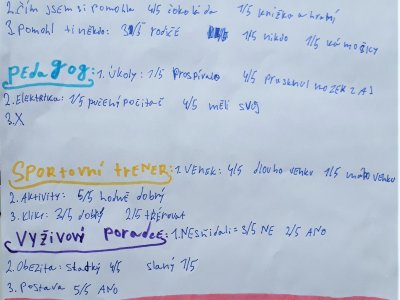 2. čím jsem si pomohla 4/5 čokoláda 1/5 knížko a hraní
3. Pomohl ti někdo: 3/5 rodiče 1/5 nikdo 1/5 kámošky
Pedagog: 1. úkoly: 1/5 prospívalo 4/5 prasknul mozek z AJ
2. Elektrika: 1/5 půčený počítač 4/5 měli svůj
3. X
SPORTOVNÍ trenér: 1. Venek: 4/5 dlouho venku 1/5 venku
2. Aktivity: 5/5 hodně dobrý
3. Kliky: 3/5 dobrý 2/5 trénovat
VÝŽIVOVÝ poradce: 1. Nesnídali: 3/5 NE 2/5 ANO
2. Obezita: sladký 4/5 slaný 1/5
3. Postava 5/5 ANO